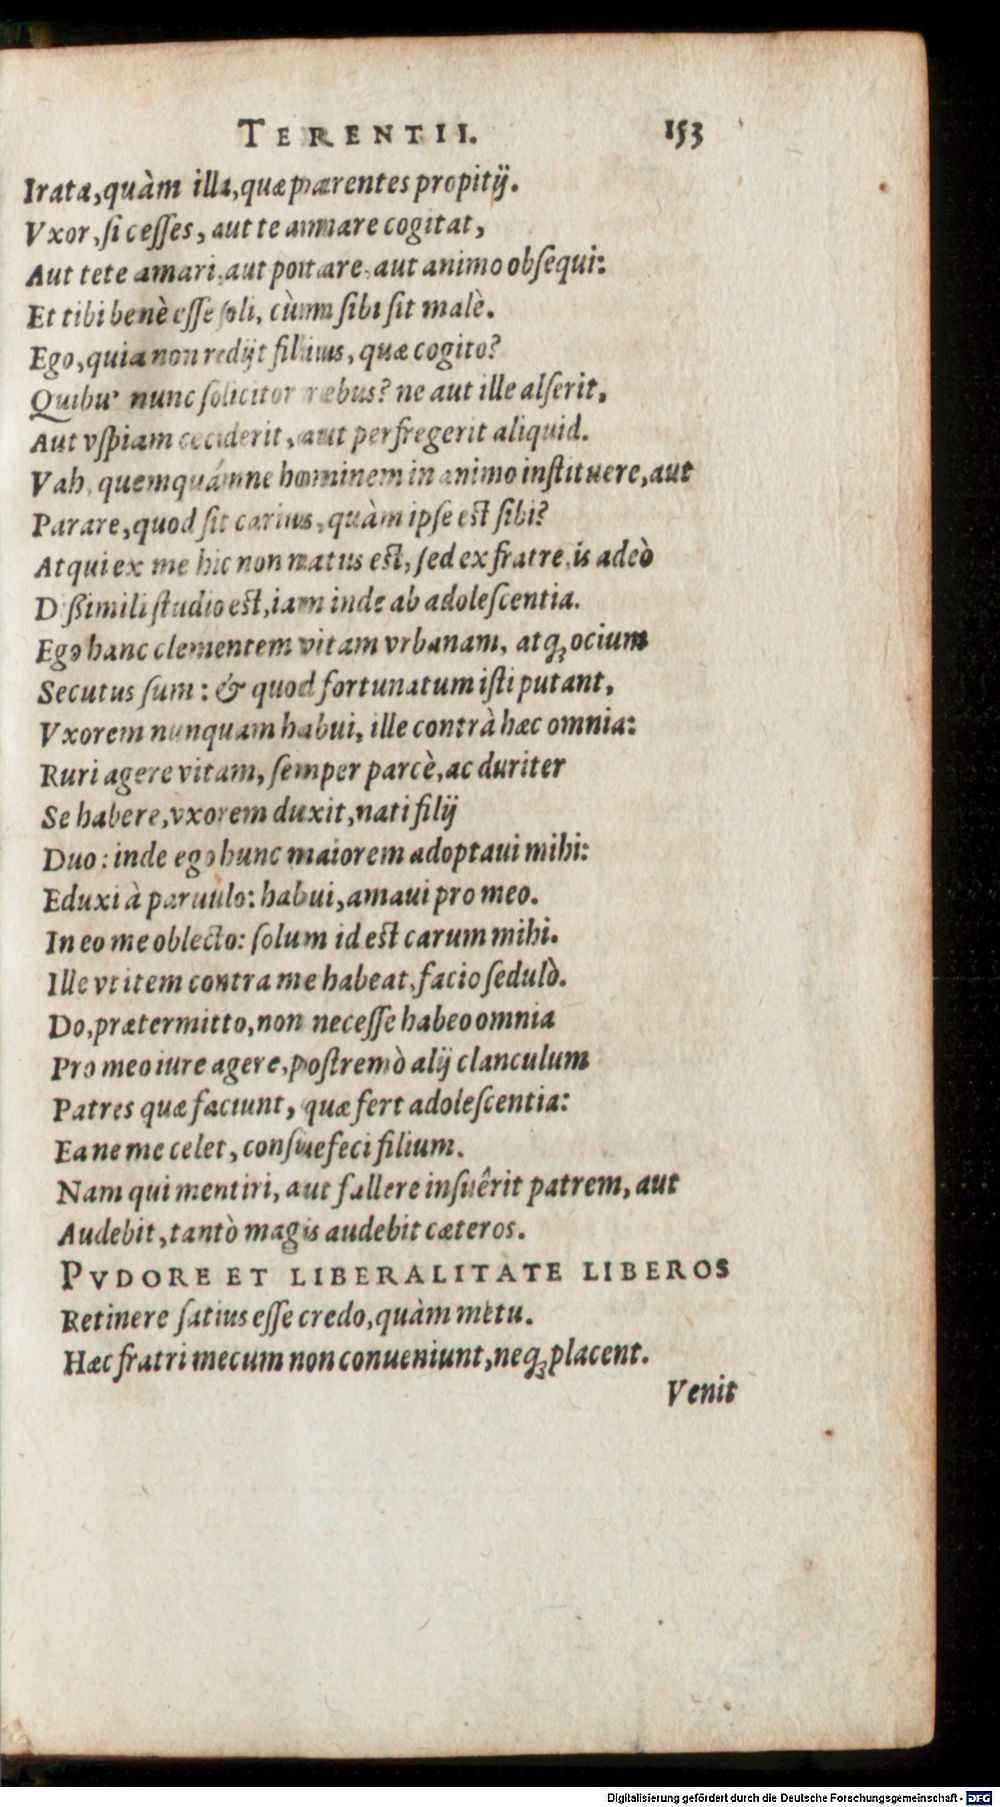 TERENTII. 153
Irata, quàm illa, quæ parentes propitij.
Vxor, si cesses, aut te amare cogitat,
Aut tete amari, aut potare, aut animo obsequi:
Et tibi benè esse soli, cùm sibi sit malè.
Ego, quia non redijt filius, quæ cogito?
Quibu' nunc solicitor rebus? ne aut ille alserit,
Aut vspiam ceciderit, aut perfregerit aliquid.
Vah, quemquámne hominem in animo instituere, aut
Parare, quod sit carius, quàm ipse est sibi?
Atqui ex me hic non natus est, sed ex fratre, is adeò
Dißimili studio est, iam inde ab adolescentia.
Ego hanc clementem vitam vrbanam, atq; ocium
Secutus sum: & quod fortunatum isti putant,
Vxorem nunquam habui, ille contrà hæc omnia:
Ruri agere vitam, semper parcè, ac duriter
Se habere, vxorem duxit, nati filij
Duo: inde ego hunc maiorem adoptaui mihi:
Eduxi à paruulo: habui, amaui pro meo.
In eo me oblecto: solum id est carum mihi.
Ille vt item contra me habeat, facio sedulò.
Do, prætermitto, non necesse habeo omnia
Pro meo iure agere, postremò alij clanculum
Patres quæ faciunt, quæ fert adolescentia:
Ea ne me celet, consuefeci filium.
Nam qui mentiri, aut fallere insuêrit patrem, aut
Audebit, tantò magis audebit cæteros.
PVDORE ET LIBERALITATE LIBEROS
Retinere satius esse credo, quàm metu.
Hæc fratri mecum non conueniunt, neq; placent.
Venit
Digitalisierung gefördert durch die Deutsche Forschungsgemeinschaft - DFG